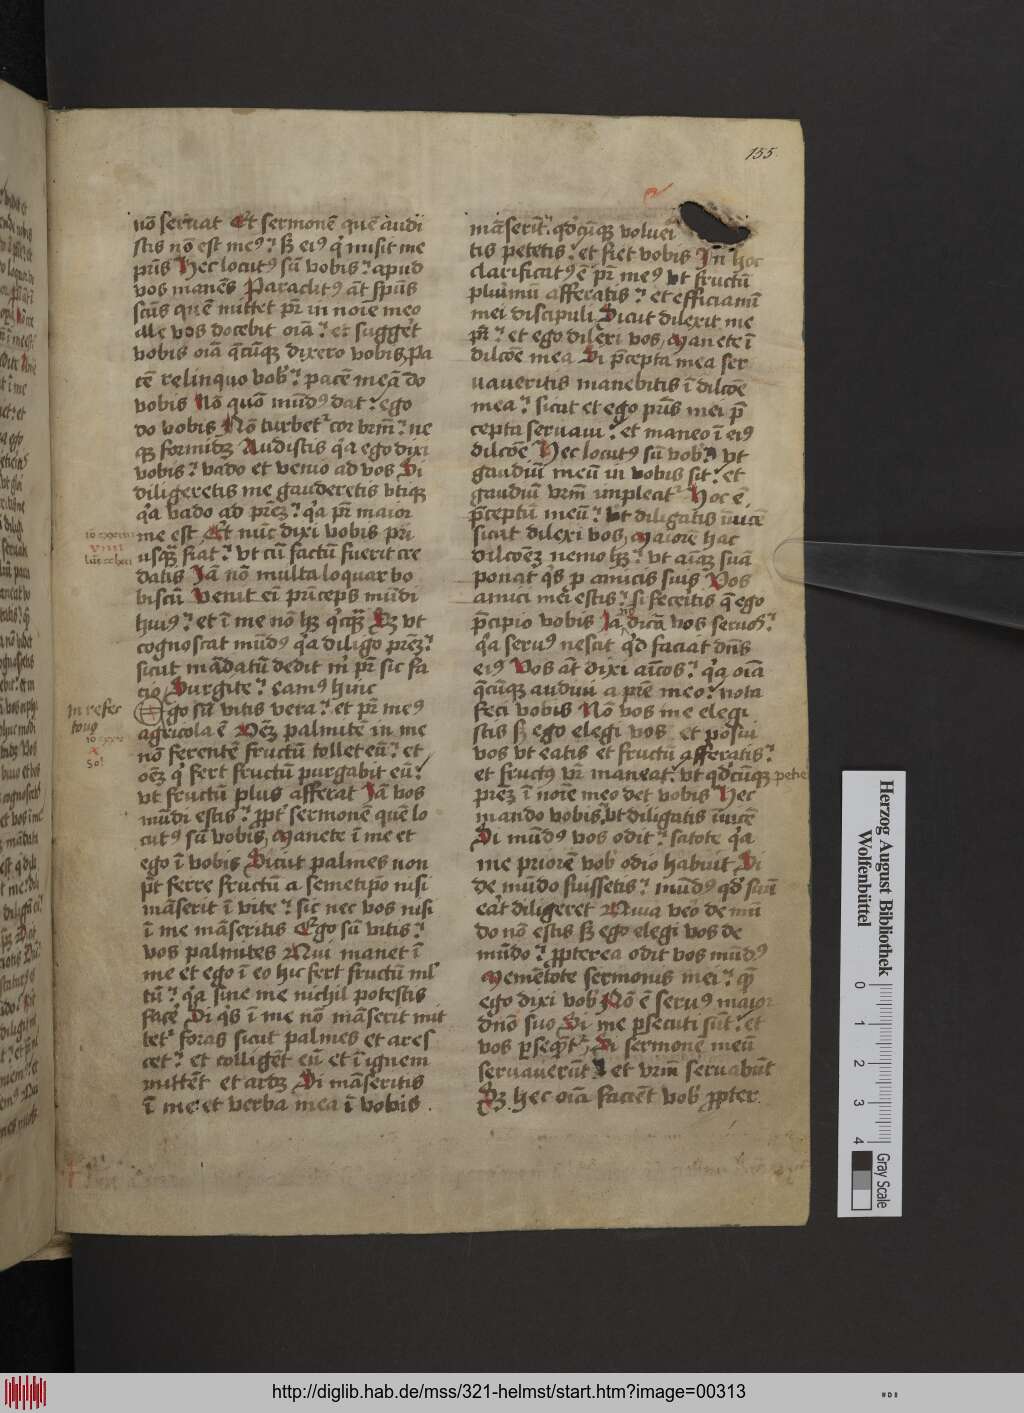 155
nō seruat Et sermonē quē audi
stis nō est meꝰ? sꝫ eiꝰ q̇ misit me
pr̄is Hec locutꝰ sū vobis? apud
vos manēs Paraclitꝰ āt spūs
sc̄us quē mittet pr̄ in noīe meo
ille vos docebit oīa? et sugget
vobis oīa q̄cūqꝫ dixero vobis Pa
cē relinquo vob? pacē meā do
vobis Nō quō mūdꝰ dat? ego
do vobis Nō turbet cor vrm̄? ne
qꝫ formidꝫ Audistis q̇a ego dixi
vobis? vado et venio ad vos Si
diligeretis me gauderetis vtiqꝫ
q̇a vado ad prēꝫ? q̇a pr̄ maior
me est Et nūc dixi vobis pri
usqꝫ fiat? vt cū factū fuerit cre
datis Iā nō multa loquar vo
biscū Venit eī princeps mūdi
huiꝰ? et ī me nō hꝫ q̇cqꝫ Sꝫ vt
cognoscat mūdꝰ q̇a diligo prēꝫ?
sicut mādatū dedit m̄ pr̄ sic fa
cio Surgite? eamꝰ hinc
In refec
torio
Ego sū vitis vera? et pr̄ meꝰ
agricola ē Oēꝫ palmitē in me
nō ferentē fructū tollet eū? et
oēꝫ q̇ fert fructū purgabit eū?
vt fructū plus afferat Iā vos
mūdi estis? ꝓpt sermonē quē lo
cutꝰ sū vobis Manete ī me et
ego ī vobis Sicut palmes non
pt ferre fructū a semetipō nisi
māserit ī vite? sic nec vos nisi
ī me māseritis Ego sū vitis?
vos palmites Qui manet ī
me et ego ī eo hic fert fructū ml̄
tū? q̇a sine me nichil potestis
facē Si q̇s ī me nō māserit mit
tet foras sicut palmes et ares
cet? et colligēt eū et ī ignem
mittēt et ardꝫ Si māseritis
ī me et verba mea ī vobis
māserīt? qd̄cūqꝫ voluei
tis petetis? et fiet vobis In hoc
clarificatꝰ ē pr̄ meꝰ vt fructū
plurimū afferatis? et efficiamī
mei discipuli Sicut dilexit me
pr̄? et ego dilexi vos Manete ī
dilcōe mea Si p̄cepta mea ser
uaueritis manebitis ī dilcōe
mea? sicut et ego pr̄is mei p̄
cepta seruaui? et maneo ī eiꝰ
dilcōe Hec locutꝰ sū vob vt
gaudiū meū in vobis sit? et
gaudiū vrm̄ impleat Hoc ē
p̄ceptū meū? vt diligatis īuicē
sicut dilexi vos Maiorē hac
dilcōeꝫ nemo hꝫ? vt aīaꝫ suā
ponat q̇s p amicis suis Vos
amici mei estis? si feceitis q̄ ego
p̄cipio vobis Iā nō dicā vos seruos?
q̇a seruꝰ nescit qd̄ faciat dn̄s
eiꝰ Vos āt dixi amcos? q̇a oīa
q̄cūqꝫ audiui a prē meo? nota
feci vobis Nō vos me elegi
stis sꝫ ego elegi vos et posui
vos vt eatis et fructū afferatis?
et fructꝰ vr̄ maneat? vt qd̄cūqꝫ petie
prēꝫ ī noīe meo det vobis Hec
mando vobis vt diligatis īuicē
Si mūdꝰ vos odit? scitote q̇a
me priorē vob odio habuit Si
de mūdo fuissetis? mūdꝰ qd̄ suū
eat diligeret Quia veo de mū
do nō estis sꝫ ego elegi vos de
mūdo? ꝓpterea odit vos mūdꝰ
Memētote sermonis mei? quē
ego dixi vob Nō ē seruꝰ maior
dn̄o suo Si me psecuti sūt? et
vos pseqēt Si sermonē meū
seruauerūt et vrm̄ seruabūt
Sꝫ hec oīa faciēt vob ꝓpter
Herzog August Bibliothek
Wolfenbüttel
0 1 2 3 4
Gray Scale
http://diglib.hab.de/mss/321-helmst/start.htm?image=00313